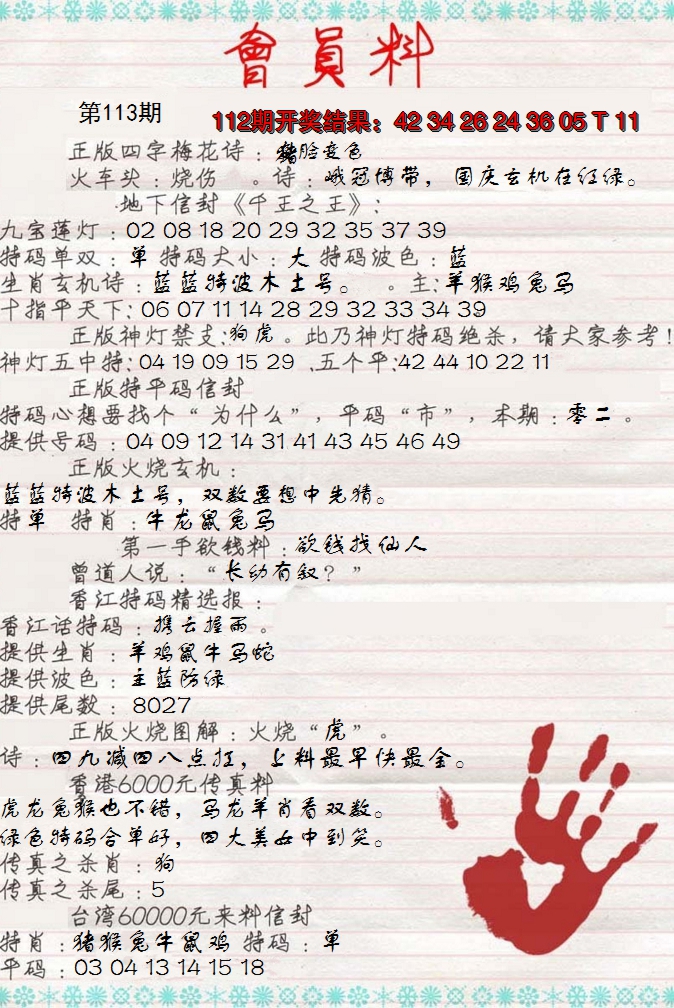 會員料
第113期
112期开奖结果：42 34 26 24 36 05 T 11
正版四字梅花诗：猪脸变色
火车头：烧伤 。诗：峨冠博带，国庆玄机在红绿。
地下信封《千王之王》：
九宝莲灯：02 08 18 20 29 32 35 37 39
特码单双：单 特码大小：大 特码波色：蓝
生肖玄机诗：蓝蓝特波木土号。 。主：羊猴鸡兔马
十指平天下：06 07 11 14 28 29 32 33 34 39
正版神灯禁支：狗虎。此乃神灯特码绝杀，请大家参考！
神灯五中特：04 19 09 15 29 、五个平：42 44 10 22 11
正版特平码信封
特码心想要找个“为什么”，平码“市”，本期：零二。
提供号码：04 09 12 14 31 41 43 45 46 49
正版火烧玄机：
蓝蓝特波木土号，双数要想中先猜。
特单 特肖：牛龙鼠兔马
第一手欲钱料：欲钱找仙人
曾道人说：“长幼有叙？”
香江特码精选报：
香江话特码：携云握雨。
提供生肖：羊鸡鼠牛马蛇
提供波色：主蓝防绿
提供尾数：8027
正版火烧图解：火烧“虎”。
诗：四九减四八点扛，上料最早快最全。
香港6000元传真料
虎龙兔猴也不错，马龙羊肖看双数。
绿色特码合单好，四大美女中到笑。
传真之杀肖：狗
传真之杀尾：5
台湾60000元来料信封
特肖：猪猴兔牛鼠鸡 特码：单
平码：03 04 13 14 15 18